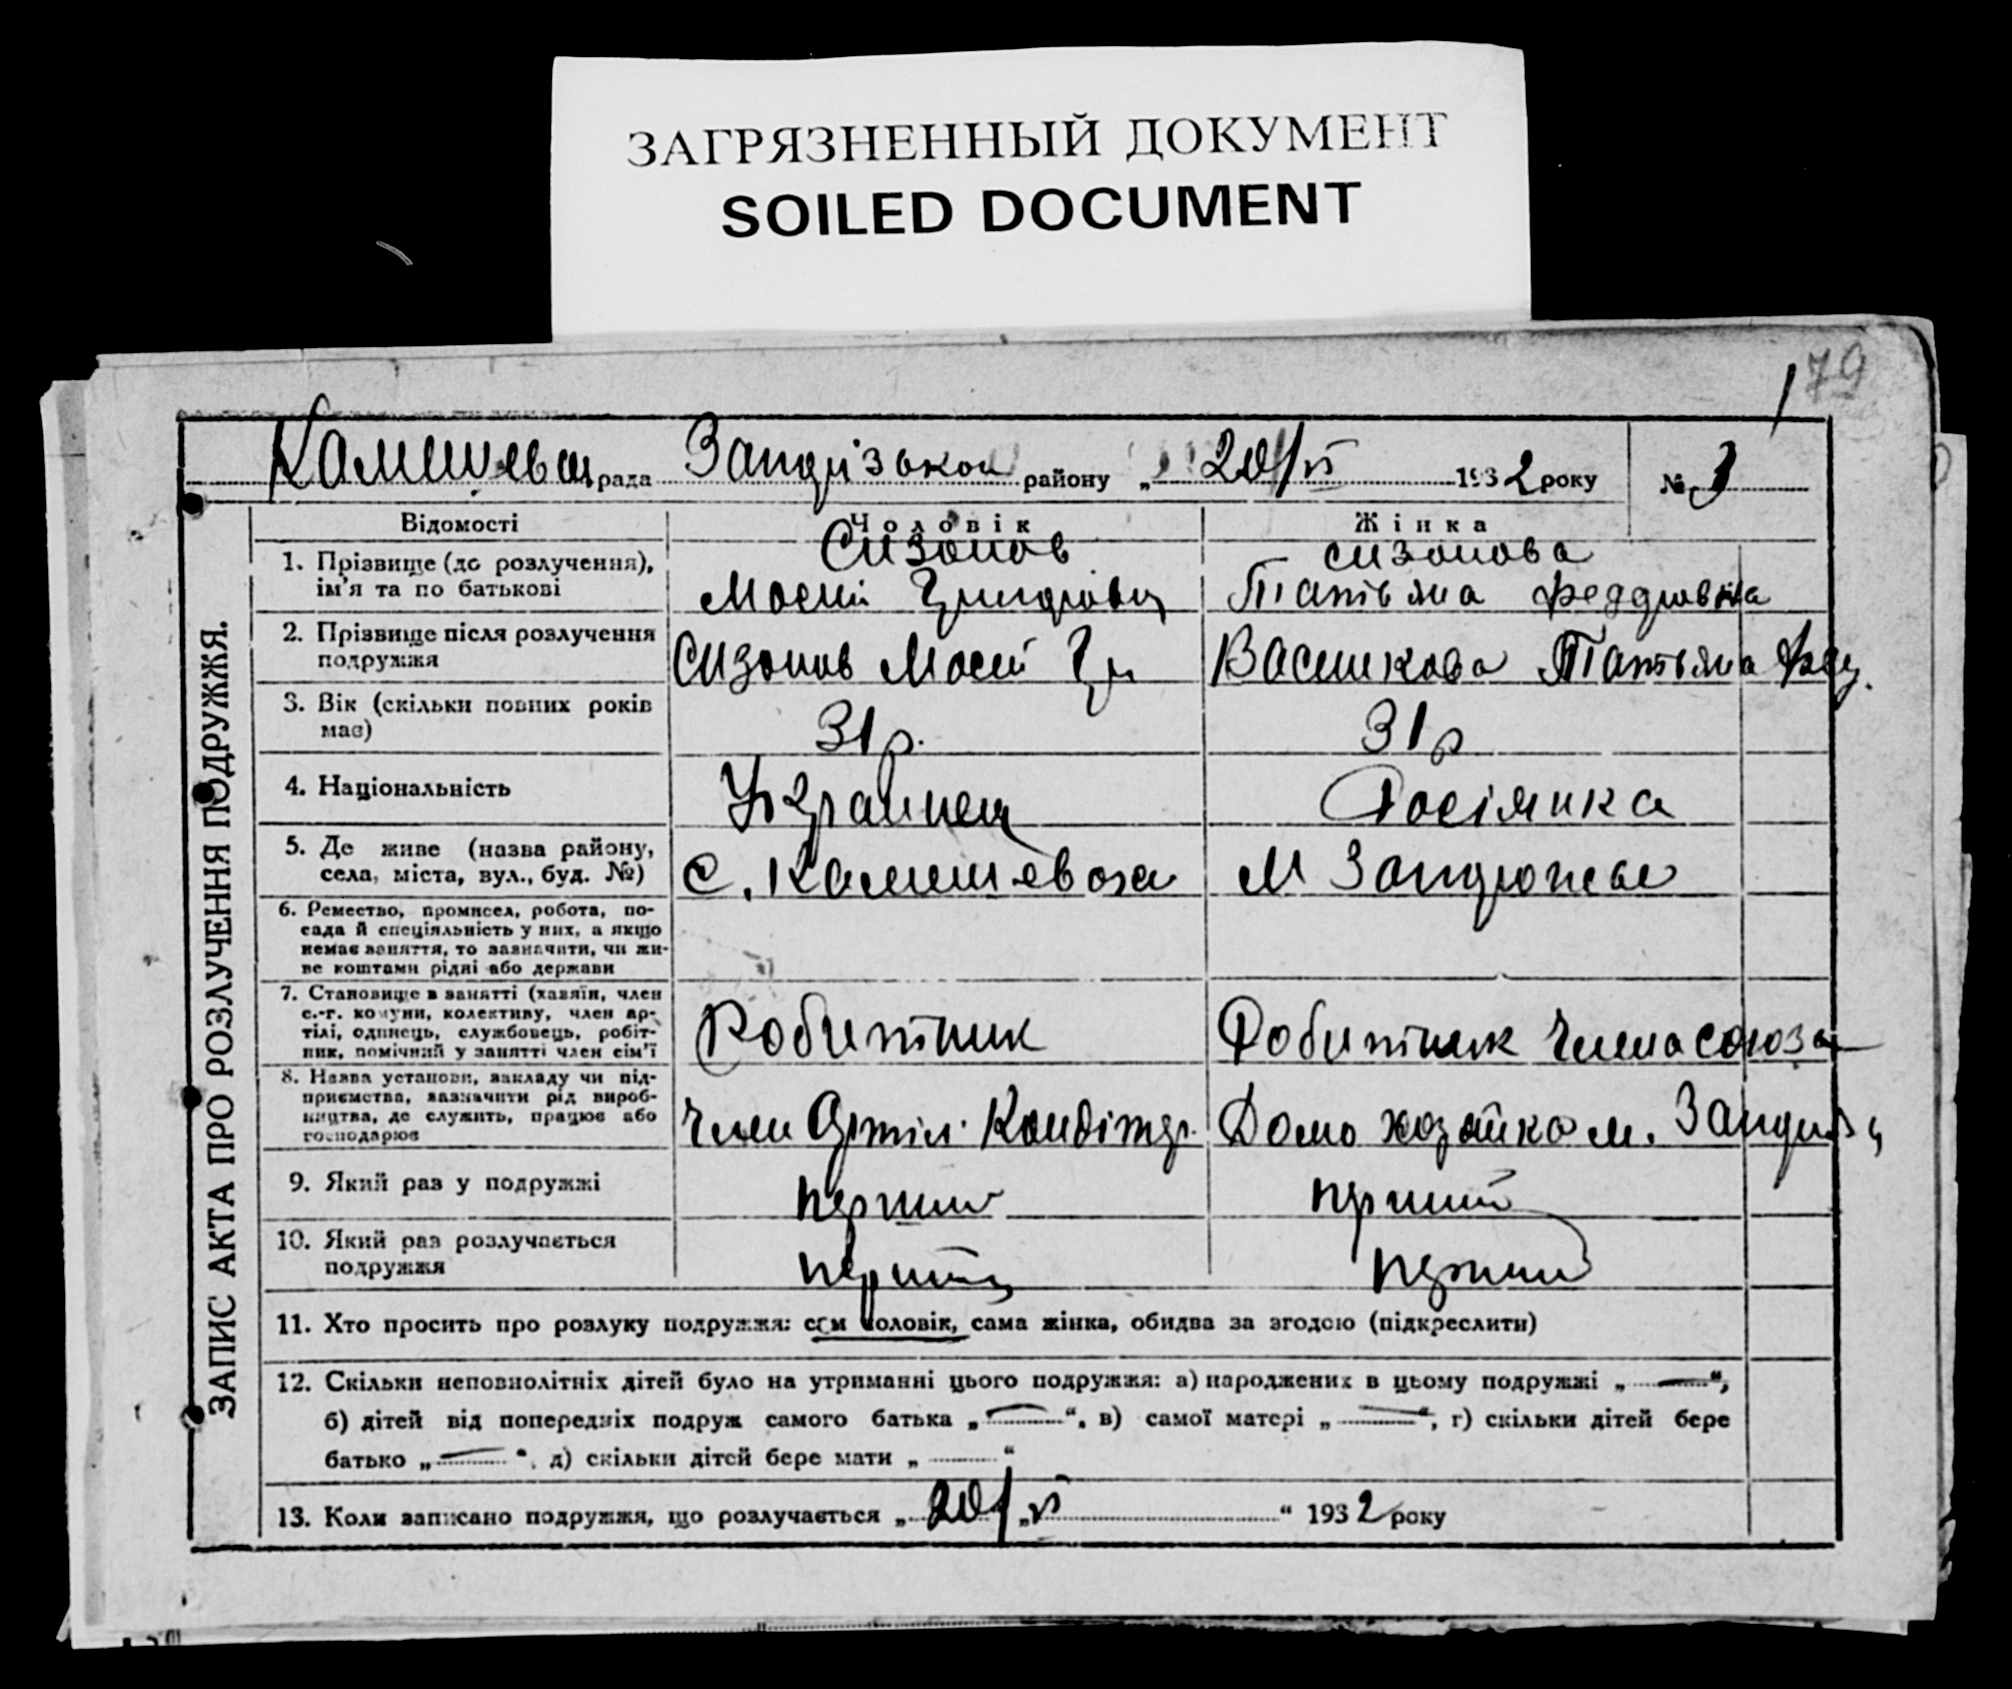 ЗАГРЯЗНЕННЫЙ ДОКУМЕНТ
SOILED DOCUMENT
79
рада району „ 20/VI 1932 року № 3
ЗАПИС АКТА ПРО РОЗЛУЧЕННЯ ПОДРУЖЖЯ.
Відомості Чоловік Жінка
1. Прізвище (до розлучення), Сизонов Сизонова
ім'я та по батькові Моєсій Татьяна Феддровна
2. Прізвище після розлучення
подружжя Сизонов Моєсій Гр Васшкова Татьяна Фед.
3. Вік (скільки повних років
має) 31 р. 31 р
4. Національність Українец Росіянка
5. Де живе (назва району,
села, міста, вул., буд. №) с. Камишеваха м Запорожье
6. Ремество, промисел, робота, по-
сада й спеціяльність у них, а якщо
немає заняття, то зазначити, чи жи-
ве коштами рідні або держави
7. Становище в занятті (хазяїн, член
с.-г. комуни, колективу, член ар-
тілі, одинець, службовець, робіт-
ник, помічний у занятті член сім'ї Робитник Робитник члена союза
8. Назва установи, закладу чи під-
приємства, зазначити рід вироб-
ництва, де служить, працює або
господарює член Артіл. Домохозяйка м.
9. Який раз у подружжі перший перший
10. Який раз розлучається
подружжя перший перший
11. Хто просить про розлуку подружжя: сам чоловік, сама жінка, обидва за згодою (підкреслити)
12. Скільки неповнолітніх дітей було на утриманні цього подружжя: а) народжених в цьому подружжі „ — “,
б) дітей від попередніх подруж самого батька „ — “, в) самої матері „ — “, г) скільки дітей бере
батько „ — “, д) скільки дітей бере мати „ “
13. Коли записано подружжя, що розлучається „ 20/VI “ 1932 року